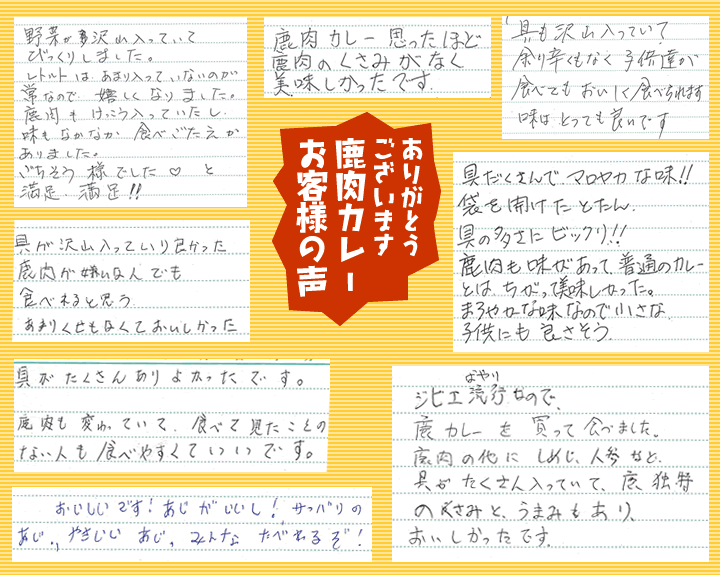 野菜が多沢山入っていて
びっくりしました。
レトルトは、あまり入っていないのが
常なので、嬉しくなりました。
鹿肉もけっこう入っていたし、
味もなかなか食べごたえが
ありました。
ごちそう様でした♡ と
満足、満足!!
鹿肉カレー思ったほど
鹿肉のくさみがなく
美味しかったです.
具も沢山入っていて
余り辛くもなく子供達が
食べてもおいしく食べられます
味はとっても良いです
ありがとう
ございます
鹿肉カレー
お客様の声
具だくさんで、マロヤカな味!!
袋を開けたとたん、
具の多さにビックリ!!
鹿肉も味があって、普通のカレー
とは、ちがって美味しかった。
まろやかな味なので小さな、
子供にも良さそう.
具が沢山入っていり良かった
鹿肉が嫌いな人でも
食べれると思う
あまりくせもなくておいしかった
具がたくさんありよかったです。
鹿肉も変わっていて、食べて見たことの
ない人も食べやすくていいです。
おいしいです!あじがいいし!サッパリの
あじ、やさしいあじ、みんなたべれるぞ!
はやり
ジビエ流行なので、
鹿カレーを買って食べました。
鹿肉の他にしめじ、人参など、
具がたくさん入っていて、鹿独特
のくさみと、うまみもあり、
おいしかったです。